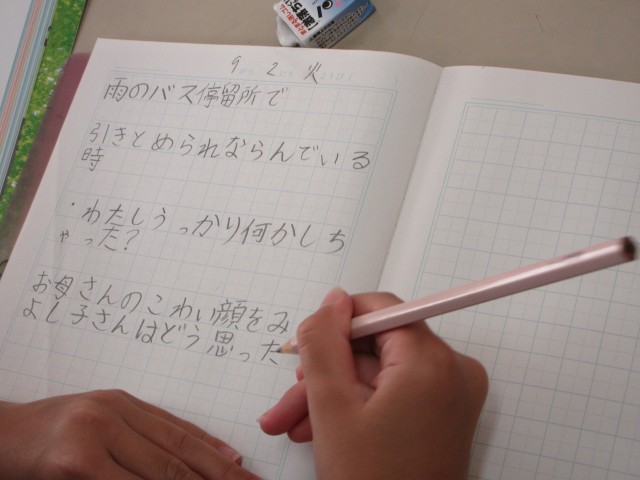 9 2 火
雨のバス停留所で
引きとめられならんでいる
時
・わたしうっかり何かしち
ゃった?
お母さんのこわい顔をみ
よし子さんはどう思った